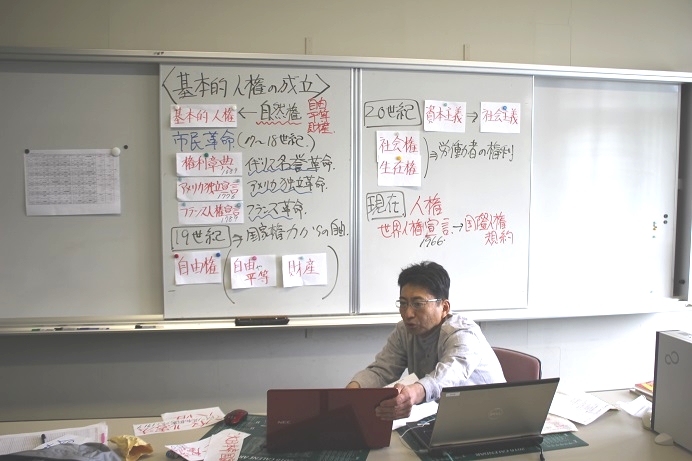 〈基本的人権の成立〉
基本的人権 ← 自然権 自由 平等 財産
市民革命 (17〜18世紀.)
権利章典 1689 イギリス名誉革命.
アメリカ独立宣言 1776 アメリカ独立革命.
フランス人権宣言 1789 フランス革命.
19世紀 ⇒ 国家権力からの自由.
自由権 ( 自由・平等 財産 )
20世紀 資本主義 → 社会主義
社会権
生存権
⇒ 労働者の権利
現在. 人権
世界人権宣言. → 国際人権規約
1966.
NEC
DELL